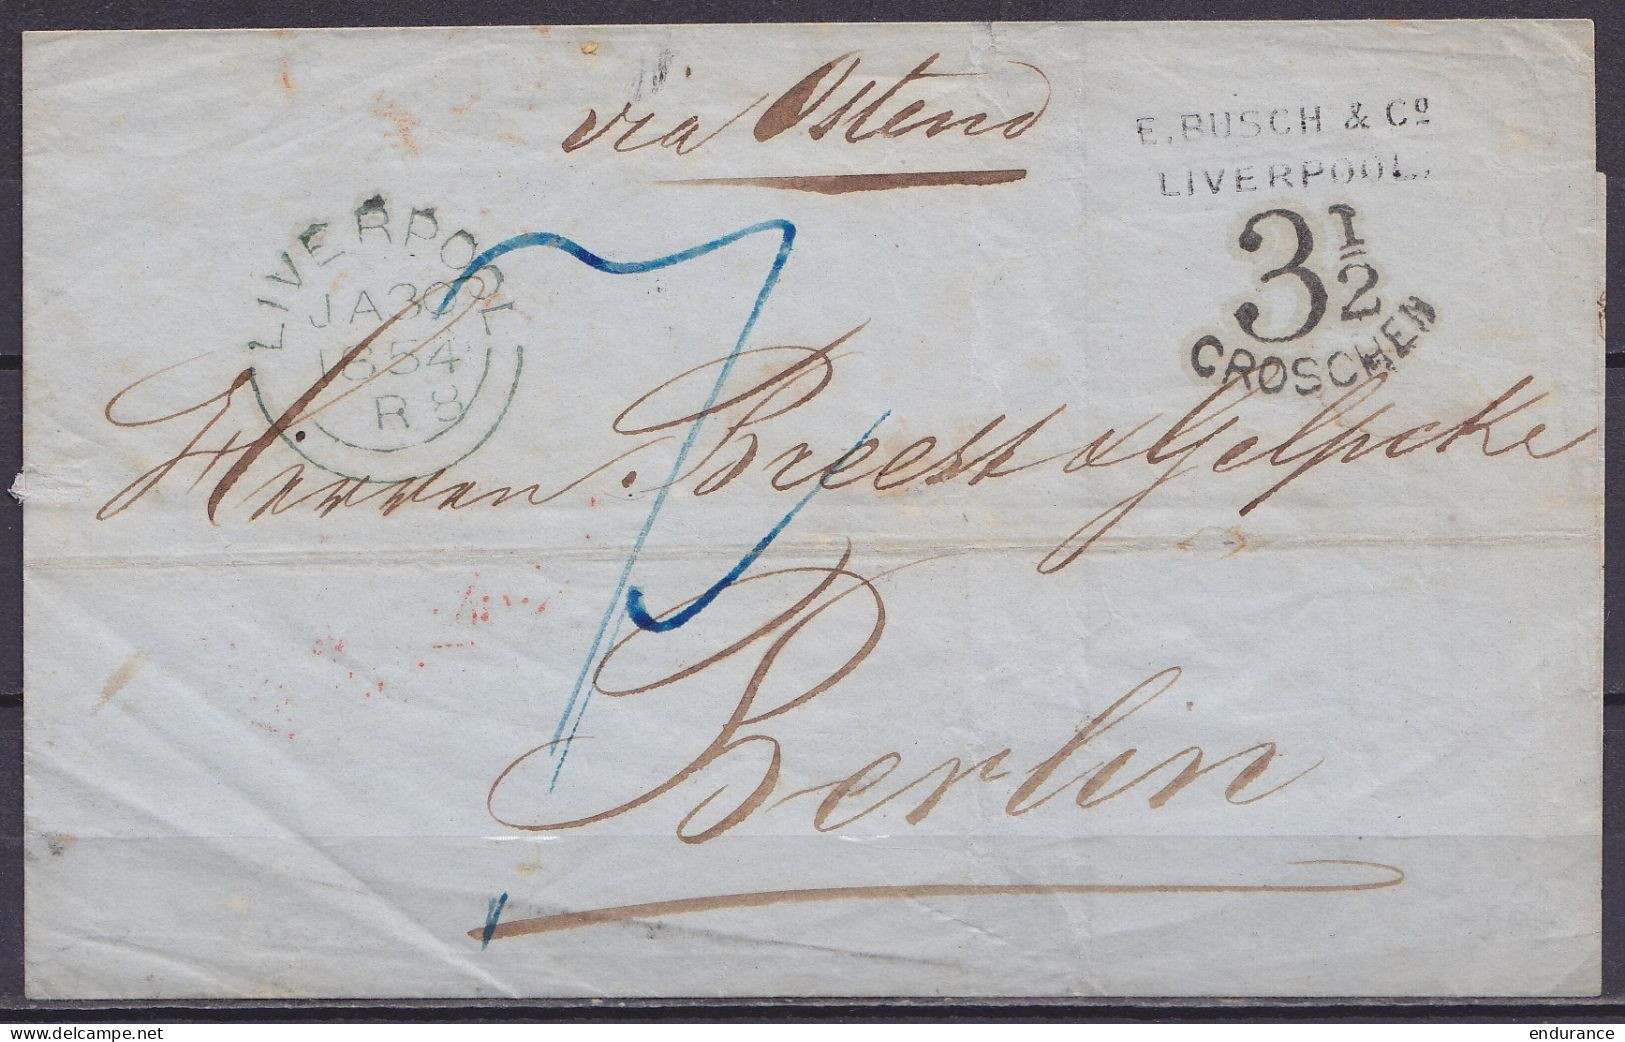 via Ostend
E. BUSCH & Cº
LIVERPOOL.
LIVERPOOL
JA 30
1854
R 8
3 1/2
GROSCHEN
7
Herren Breest & Gelpcke
Berlin
delcampe.net
endurance